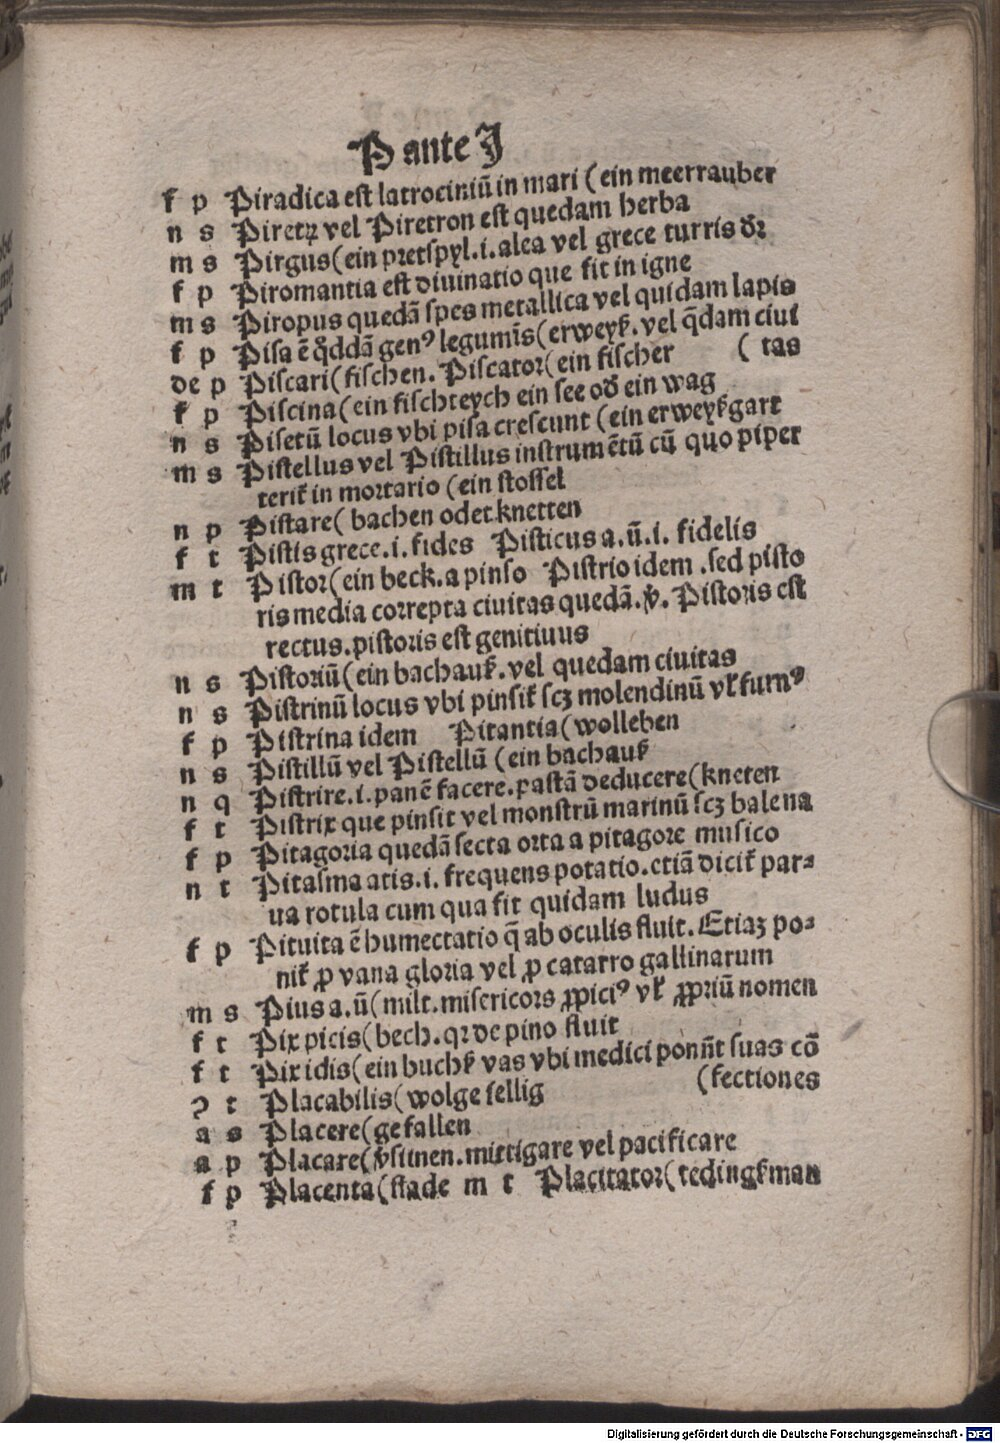 P ante J
f p Piradica est latrociniū in mari ( ein meerrauber
n s Piretꝝ vel Piretron est quedam herba
m s Pirgus ( ein pretspyl .i. alea vel grece turris
f p Piromantia est diuinatio que fit in igne
m s Piropus quedā spes metallica vel quidam lapis
f p Pisa ē genꝰ legumīs ( erweyß. vel q̄dam ciui
de p Piscari ( fischen. Piscator ( ein fischer ( tas
f p Piscina ( ein fischteych ein see ein wag
n s Pisetū locus vbi pisa crescunt ( ein erweyßgart
m s Pistellus vel Pistillus instrumētū cū quo piper
in mortario ( ein stossel
n p Pistare ( bachen oder knetten
f t Pistis grece .i. fides Pisticus a. ū. i. fidelis
m t Pistor ( ein beck. a pinso Pistrio idem . sed pisto
ris media correpta ciuitas quedā. Pistoris est
rectus. pistoris est genitiuus
n s Pistoriū ( ein bachauß. vel quedam ciuitas
n s Pistrinū locus vbi scꝫ molendinū furnꝰ
f p Pistrina idem Pitantia ( wolleben
n s Pistillū vel Pistellū ( ein bachauß
n q Pistrire .i. panē facere. pastā deducere ( kneten
f t Pistrix que pinsit vel monstrū marinū scꝫ balena
f p Pitagoria quedā secta orta a pitagore musico
n t Pitasma atis .i. frequens potatio. etiā par⸗
ua rotula cum qua fit quidam ludus
f p Pituita ē humectatio q̄ ab oculis fluit. Etiaꝫ po⸗
ꝓ vana gloria vel ꝓ catarro gallinarum
m s Pius a. ū ( milt. misericors ꝓpiciꝰ nomen
f t Pix picis ( bech. qꝛ de pino fluit
f t Pixidis ( ein buchß vas vbi medici suas cō
ꝯ t Placabilis ( wolgefellig ( fectiones
a s Placere ( gefallen
a p Placare ( mittigare vel pacificare
f p Placenta ( flade m t Placitator ( tedingßman
Digitalisierung gefördert durch die Deutsche Forschungsgemeinschaft - DFG